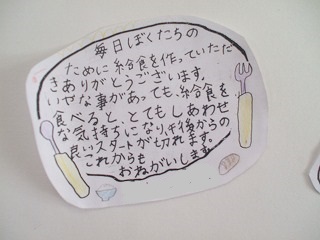 毎日ぼくたちの
ために給食を作っていただ
きありがとうございます。
いやな事があっても、給食を
食べると、とてもしあわせ
な気持ちになり、午後からの
良いスタートが切れます。
これからも
おねがいします。